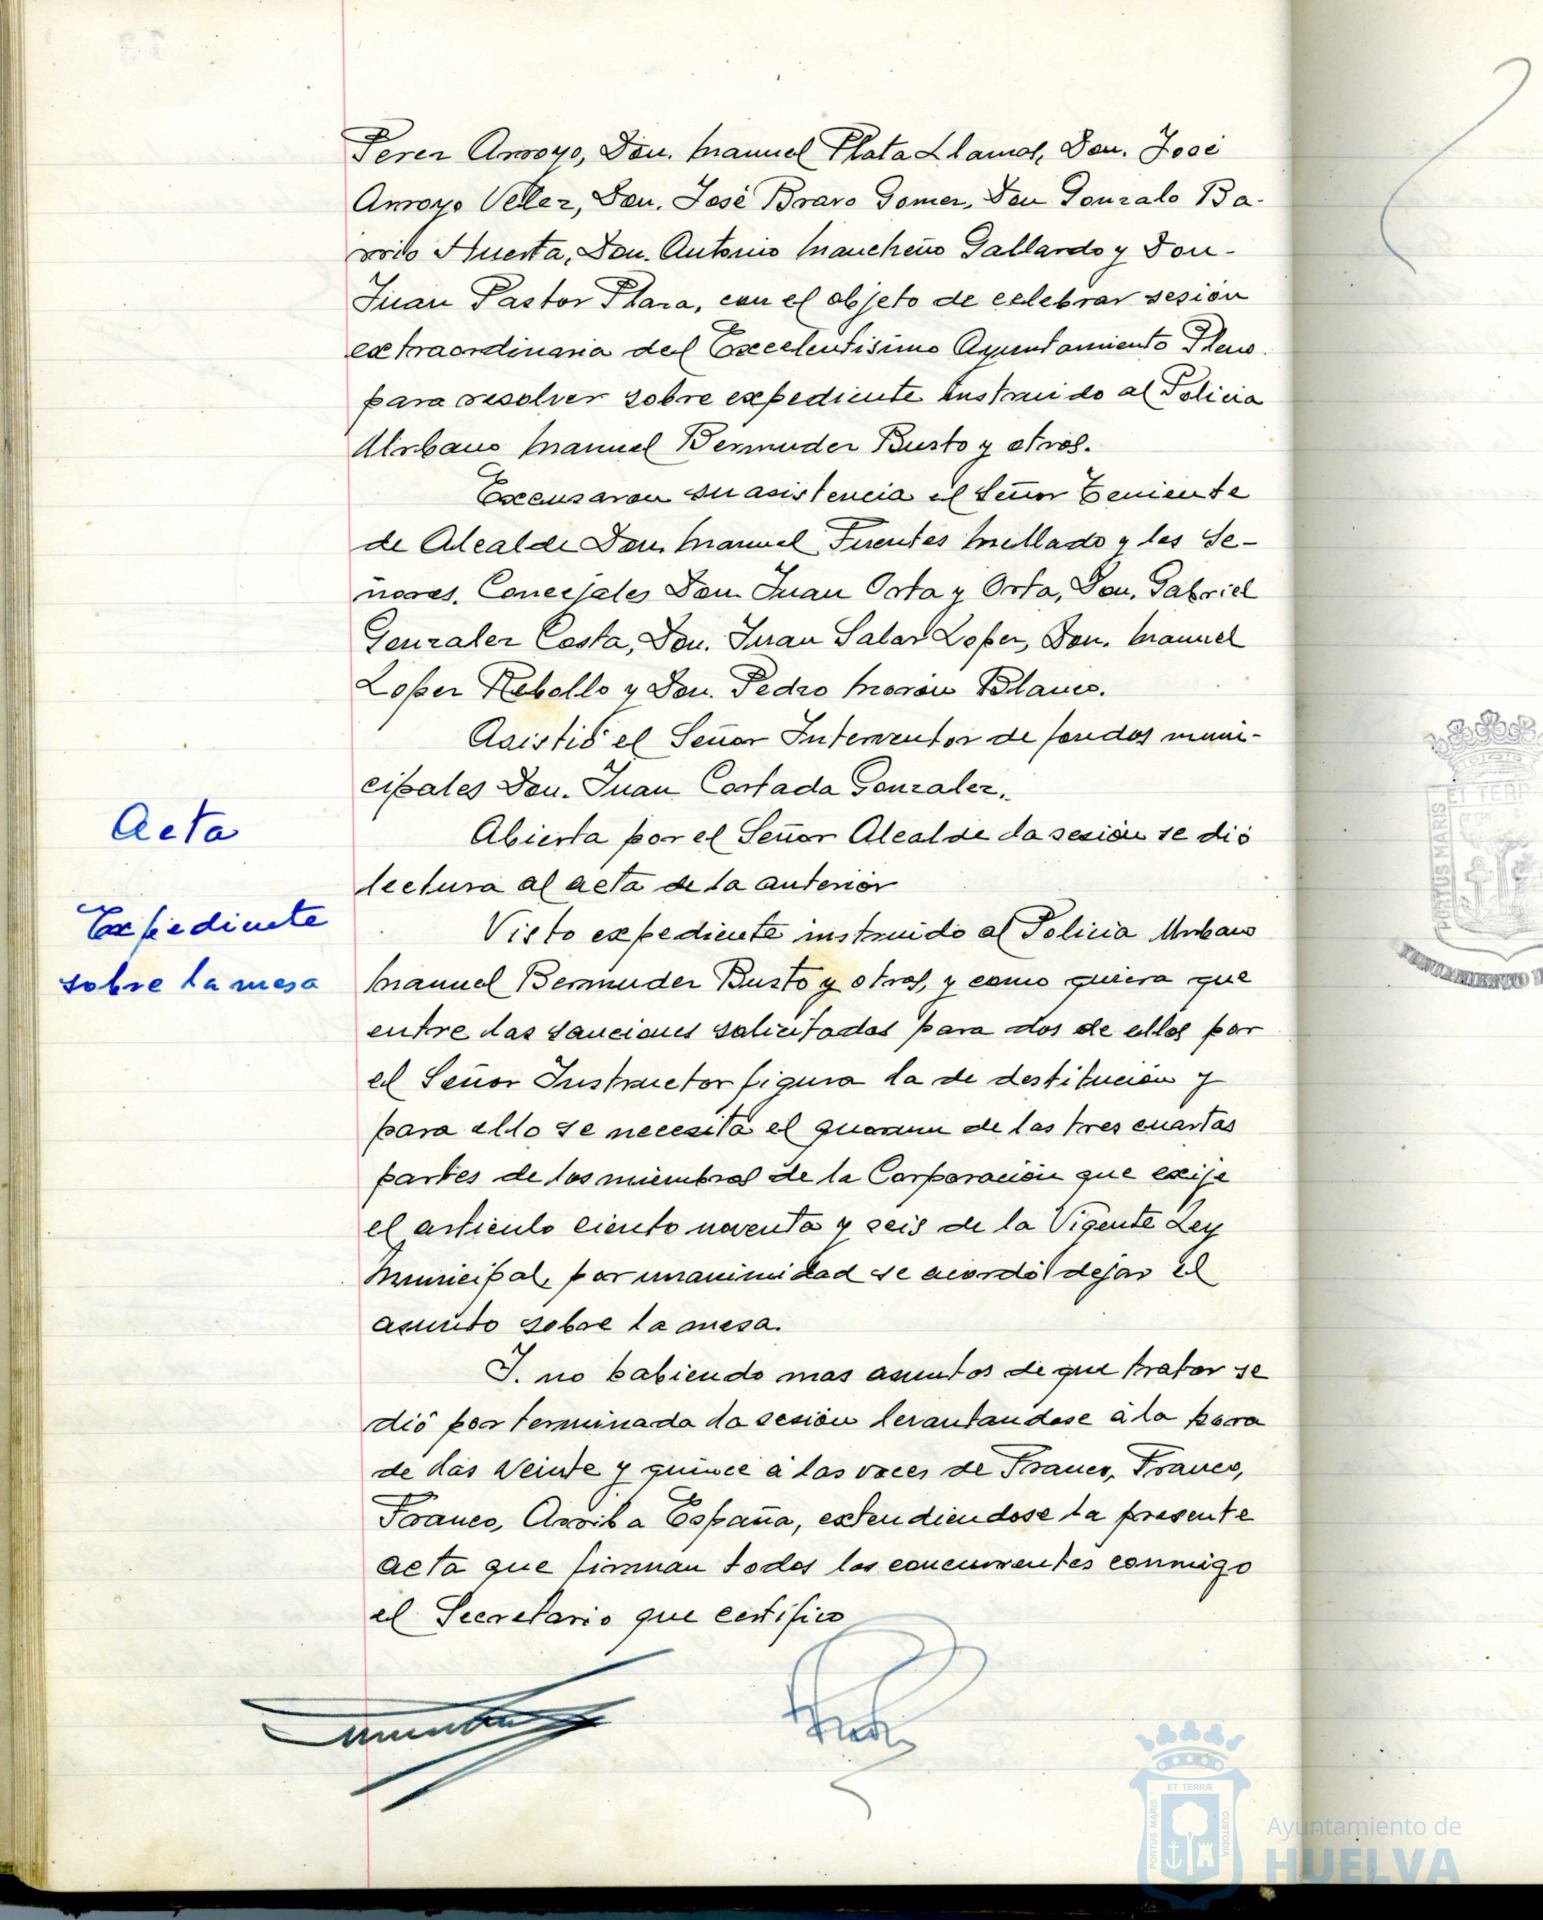 Perez Arroyo, Don. Manuel Plata Llamas, Don. José
Arroyo Velez, Don. José Bravo Gomez, Don Gonzalo Ba-
rrio Huerta, Don. Antonio Mancheño Gallardo y Don-
Juan Pastor Plaza, con el objeto de celebrar sesión
extraordinaria del Excelentisimo Ayuntamiento Pleno
para resolver sobre expediente instruido al Policia
Urbano Manuel Bermudez Busto y otros.
Excusaron su asistencia el Señor Teniente
de Alcalde Don. Manuel Fuentes Millado y los Se-
ñores. Concejales Don Juan Orta y Orta, Don. Gabriel
Gonzalez Costa, Don. Juan Salas Lopez, Don. Manuel
Lopez Rebollo y Don. Pedro Morón Blanco.
Asistió el Señor Interventor de fondos muni-
cipales Don. Juan Cortada Gonzalez.
Acta
Abierta por el Señor Alcalde la sesión se dió
lectura al acta de la anterior
Expediente
sobre la mesa
Visto expediente instruido al Policia Urbano
Manuel Bermudez Busto y otros, y como quiera que
entre las sanciones solicitadas para dos de ellos por
el Señor Instructor figura la de destitución y
para ello se necesita el quorum de las tres cuartas
partes de los miembros de la Corporación que exije
el articulo ciento noventa y seis de la Vigente Ley
Municipal, por unanimidad se acordó dejar el
asunto sobre la mesa.
Y. no habiendo mas asuntos de que tratar se
dió por terminada la sesión levantandose á la hora
de las veinte y quince á las voces de Franco, Franco,
Franco, Arriba España, extendiendose la presente
acta que firman todos los concurrentes conmigo
el Secretario que certifico
PORTUS MARIS
ET TERRÆ
CUSTODIA
Ayuntamiento de
HUELVA